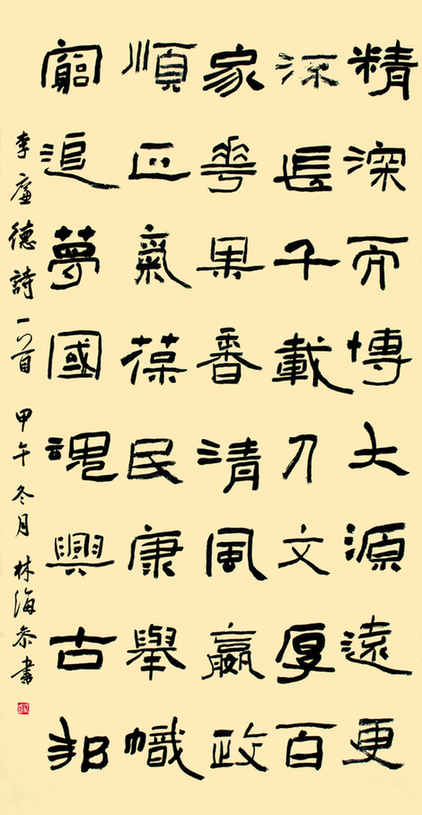 精深而博大源遠更
流長千載人文厚百
家華果香清風贏政
順正氣葆民康舉幟
窮追夢國魂興古邦
李德詩一首 甲午冬月 林海泰書